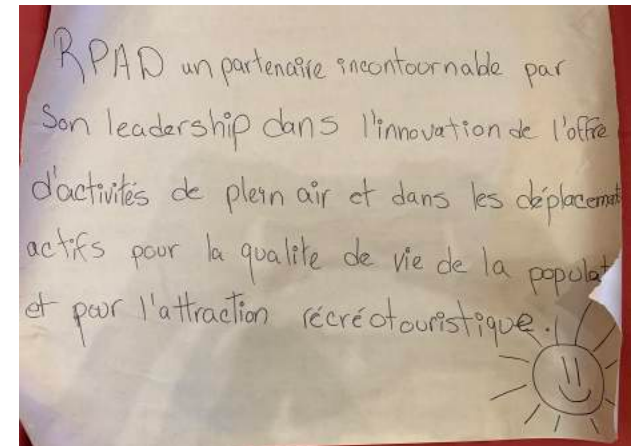 RPAD un partenaire incontournable par
Son leadership dans l'innovation de l'offre
d'activités de plein air et dans les déplacemat
actifs pour la qualite de vie de la populat
et pour l'attraction récréotouristique.